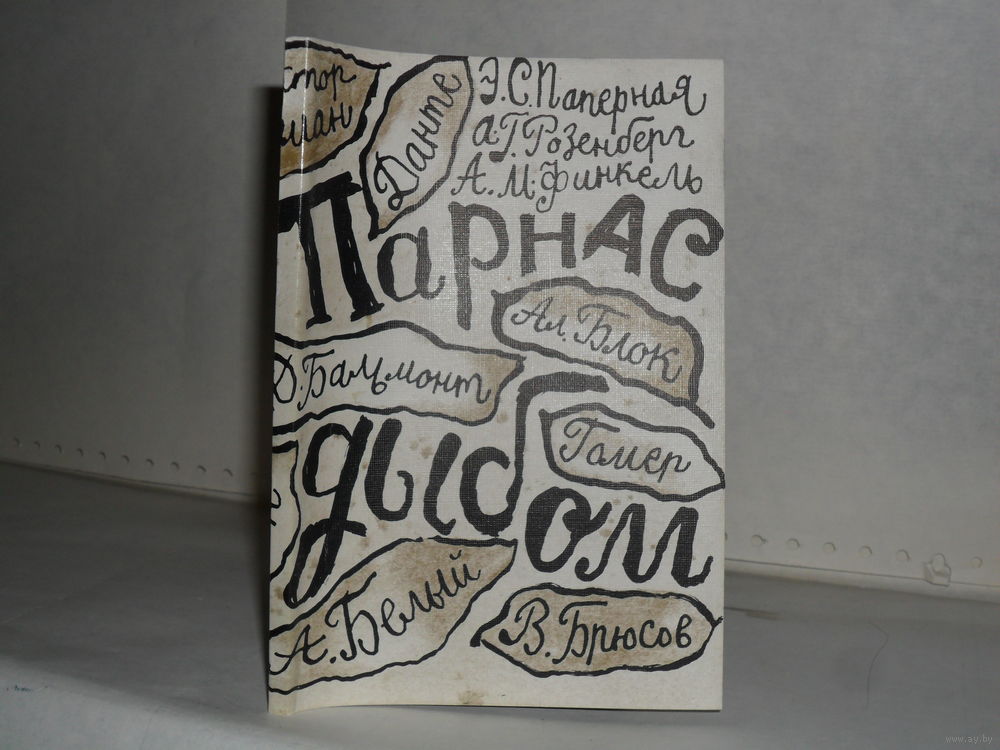 Э.С.Паперная
А.Г.Розенберг
А.М.Финкель
Данте
Парнас
Ал. Блок
Д.Бальмонт
Гомер
дыбом
А.Белый
В.Брюсов
www.ay.by